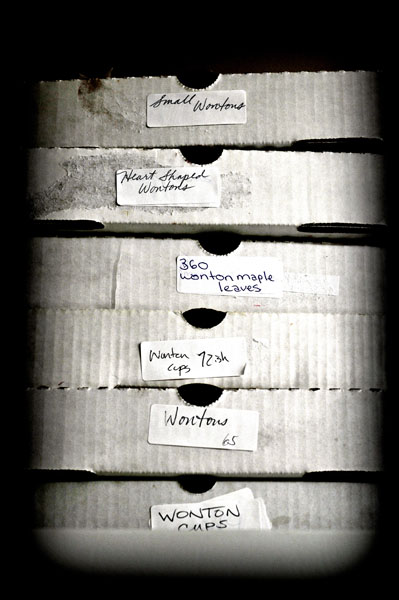 Small Wontons
Heart Shaped
Wontons
360
wonton maple
leaves
Wonton
cups 72ish
Wontons
65
WONTON
CUPS